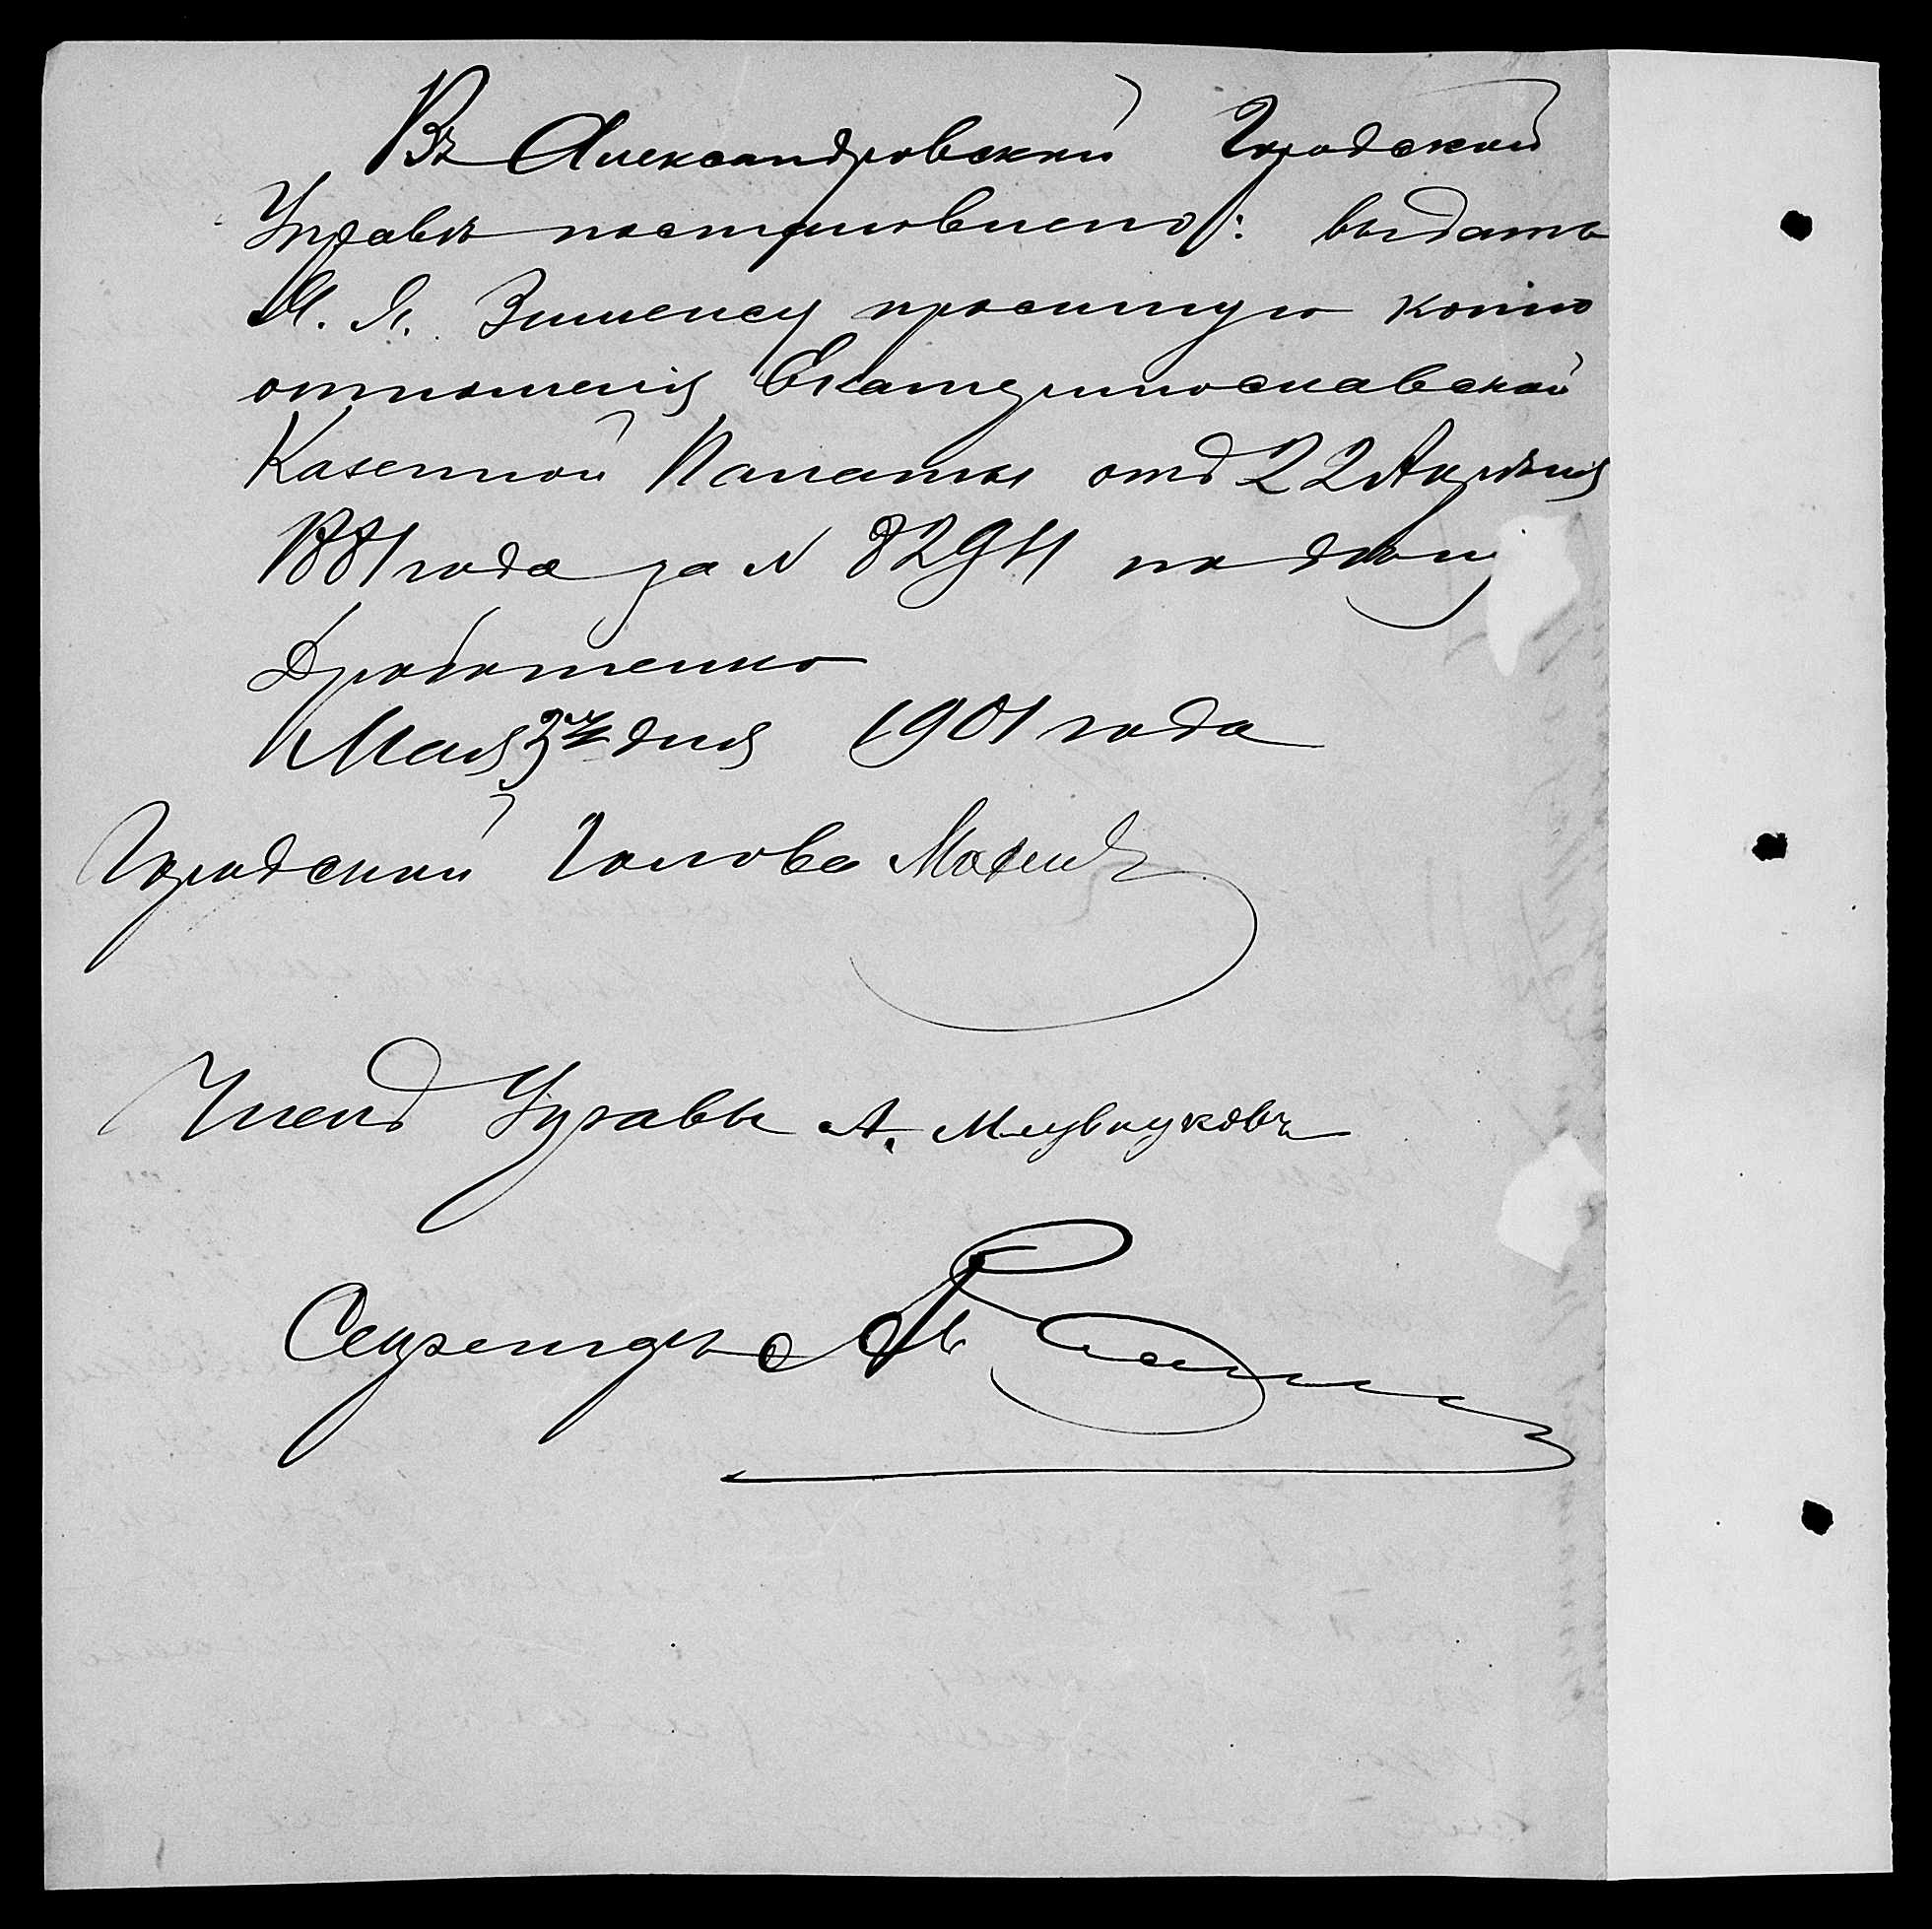 Въ Александровской Городской
Управѣ постановлено: выдать
Я. Я. Зименсу просимую копію
отношенія Екатеринославской
Казенной Палаты отъ 22 Апрѣля
1881 года за № 8294 по дѣлу
Дроботенко
Мая 3го дня 1901 года
Городской Голова
Членъ Управы А.
Секретарь